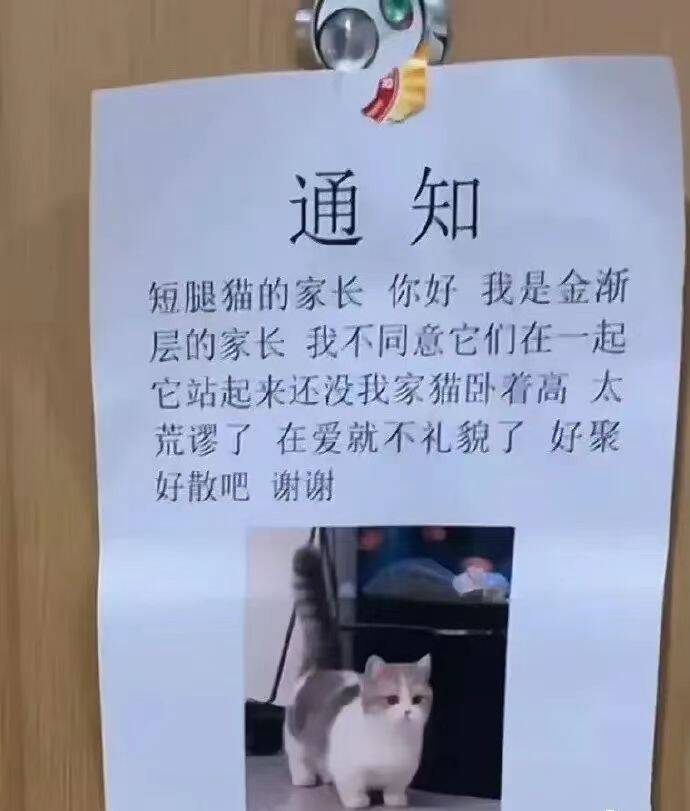 通知
短腿猫的家长 你好 我是金渐
层的家长 我不同意它们在一起
它站起来还没我家猫卧着高 太
荒谬了 在爱就不礼貌了 好聚
好散吧 谢谢